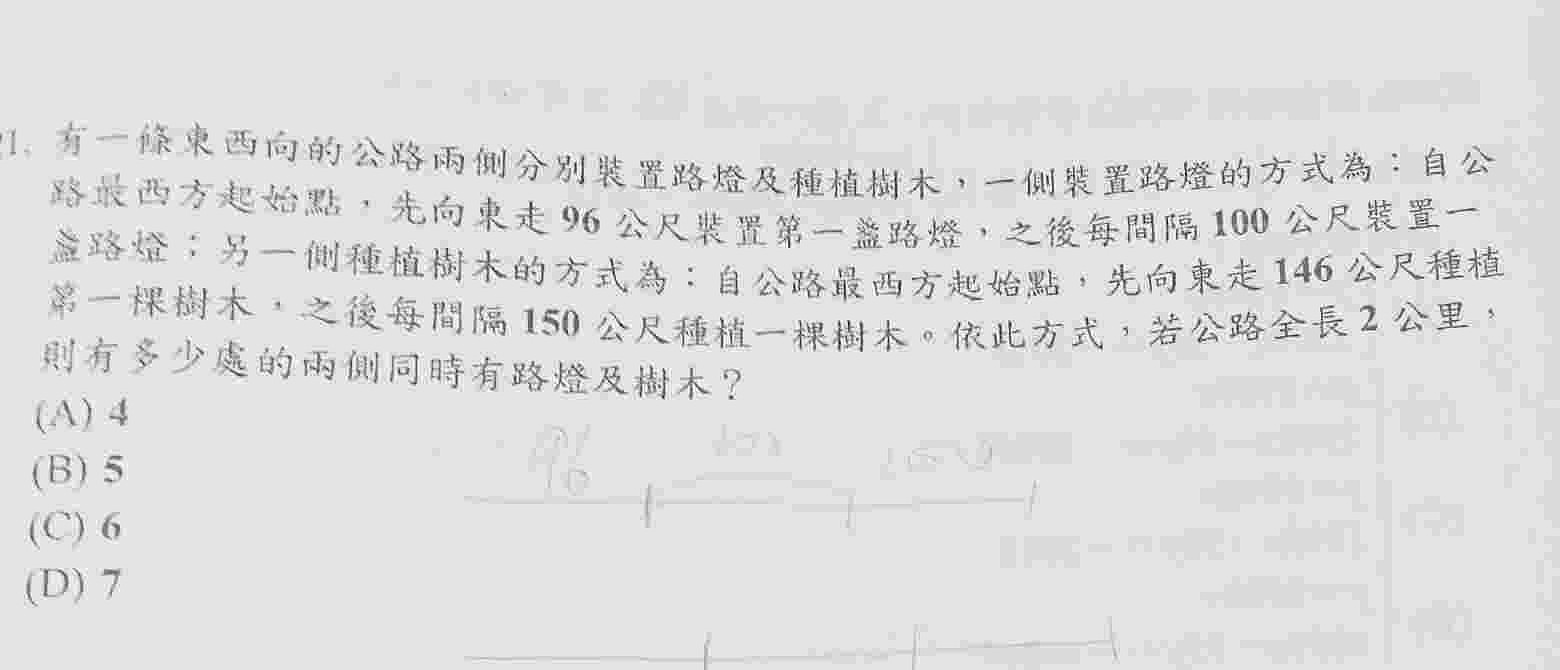 21. 有一條東西向的公路兩側分別裝置路燈及種植樹木，一側裝置路燈的方式為：自公
路最西方起始點，先向東走 96 公尺裝置第一盞路燈，之後每間隔 100 公尺裝置一
盞路燈；另一側種植樹木的方式為：自公路最西方起始點，先向東走 146 公尺種植
第一棵樹木，之後每間隔 150 公尺種植一棵樹木。依此方式，若公路全長 2 公里，
則有多少處的兩側同時有路燈及樹木？
(A) 4
(B) 5
(C) 6
(D) 7
96